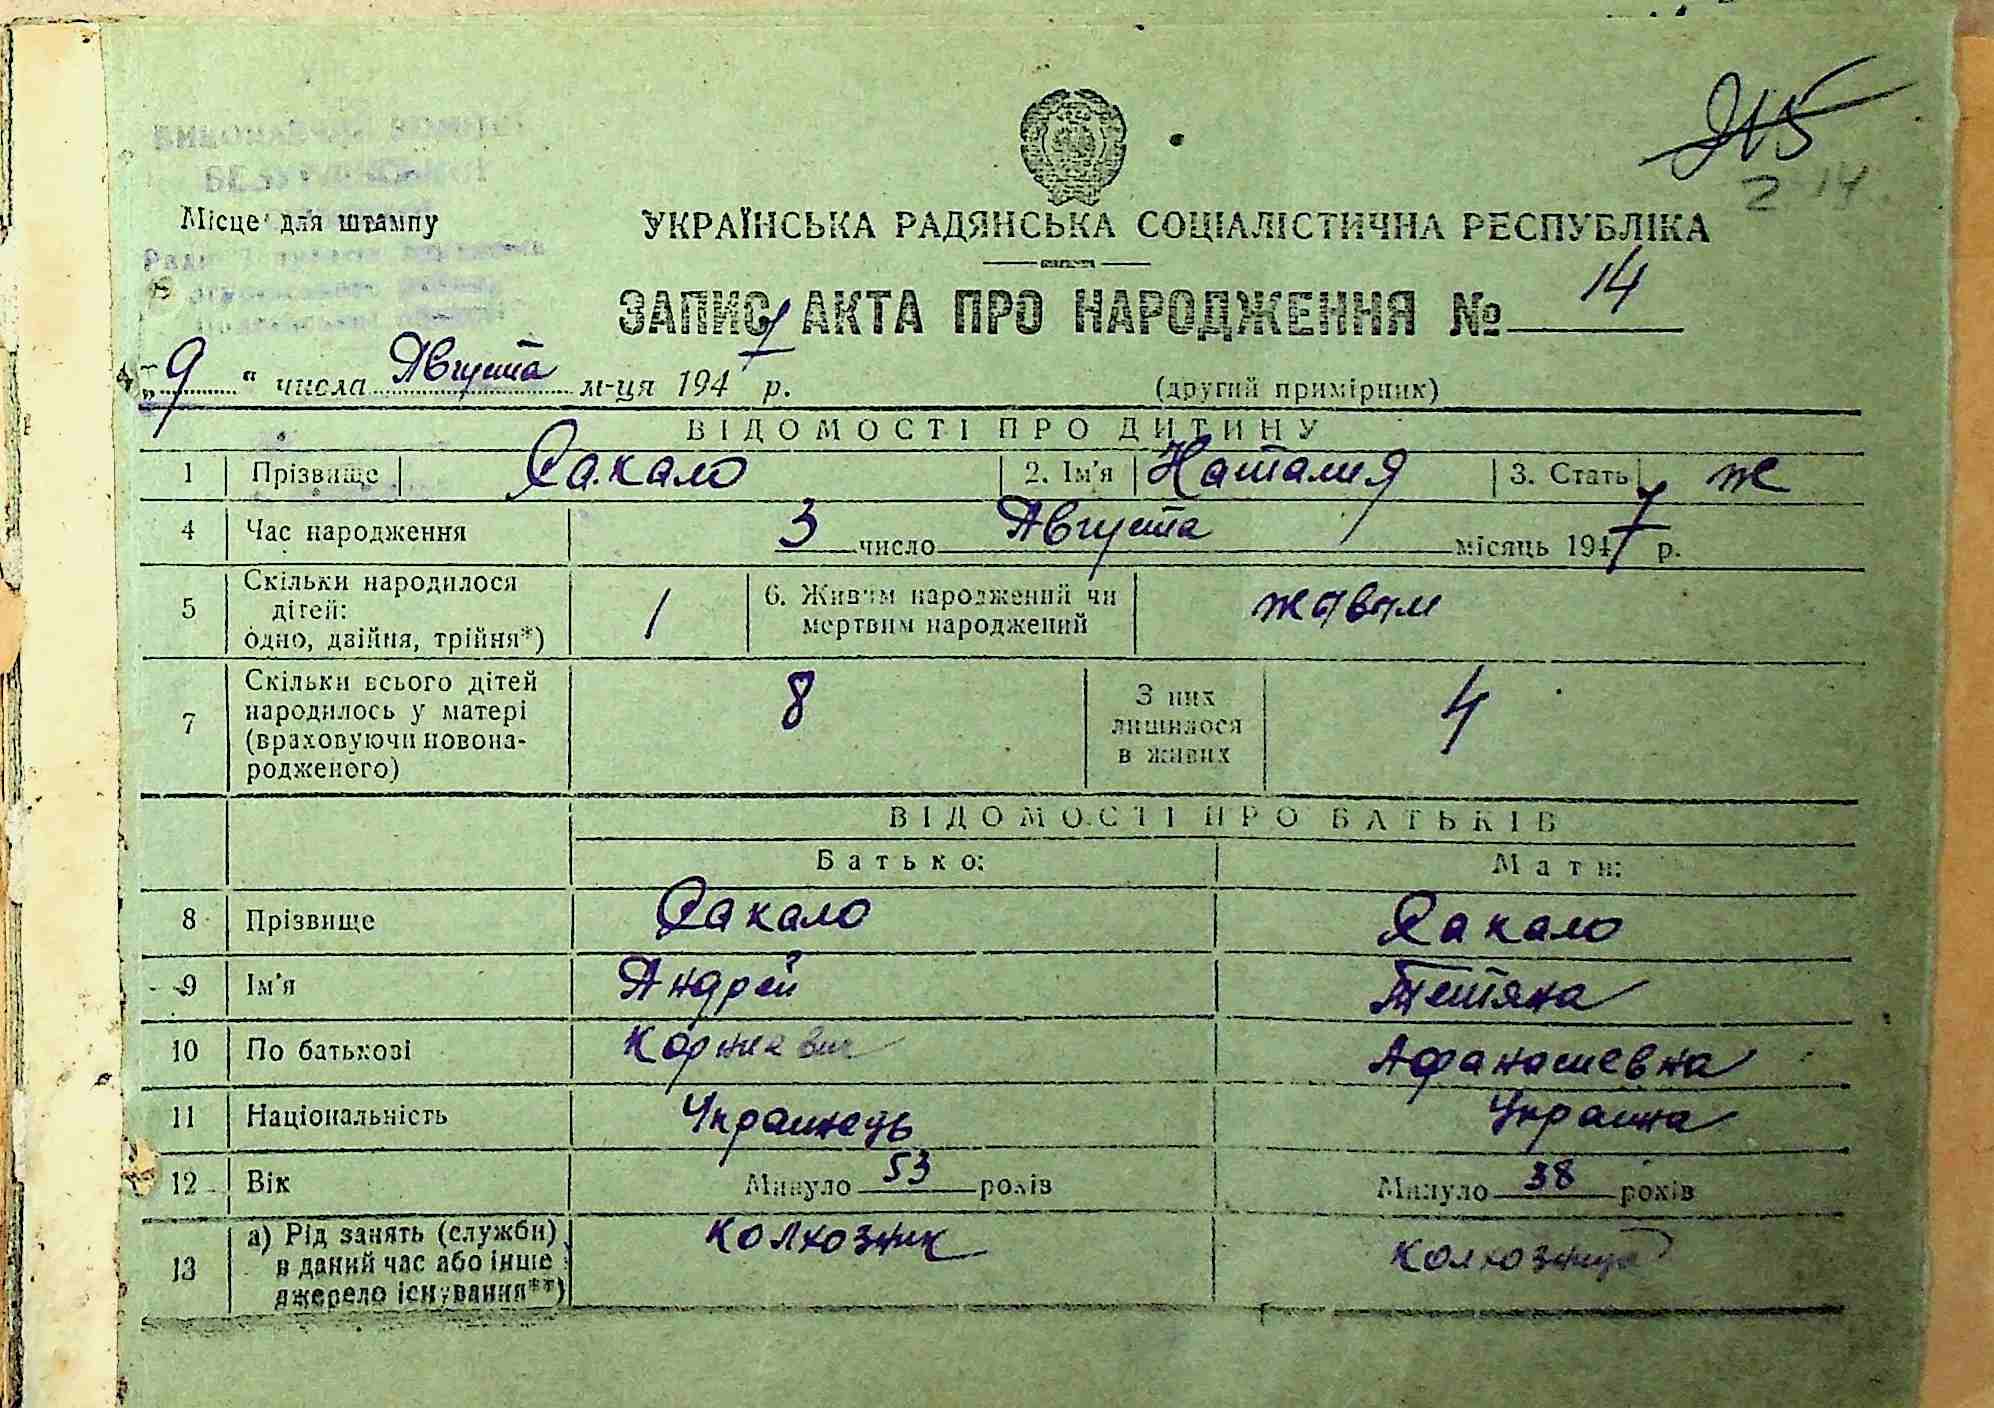 215
2 14.
Місце для штампу
УКРАЇНСЬКА РАДЯНСЬКА СОЦІАЛІСТИЧНА РЕСПУБЛІКА
ЗАПИС АКТА ПРО НАРОДЖЕННЯ № 14
„9“ числа Августа м-ця 1947 р. (другий примірник)
ВІДОМОСТІ ПРО ДИТИНУ
1 Прізвище Сакало 2. Ім'я Наталия 3. Стать ж
4 Час народження 3 число Августа місяць 1947 р.
5 Скільки народилося дітей: одно, двійня, трійня*) 1 6. Живим народжений чи мертвим народжений живим
7 Скільки всього дітей народилось у матері (враховуючи новонародженого) 8 З них лишилося в живих 4
ВІДОМОСТІ ПРО БАТЬКІВ
Батько: Мати:
8 Прізвище Сакало Сакало
9 Ім'я Андрей Тетяна
10 По батькові Корнеевич Афанасиевна
11 Національність Украинець Украина
12 Вік Минуло 53 років Минуло 38 років
13 а) Рід занять (служби) в даний час або інше джерело існування**) колхозник колхозница